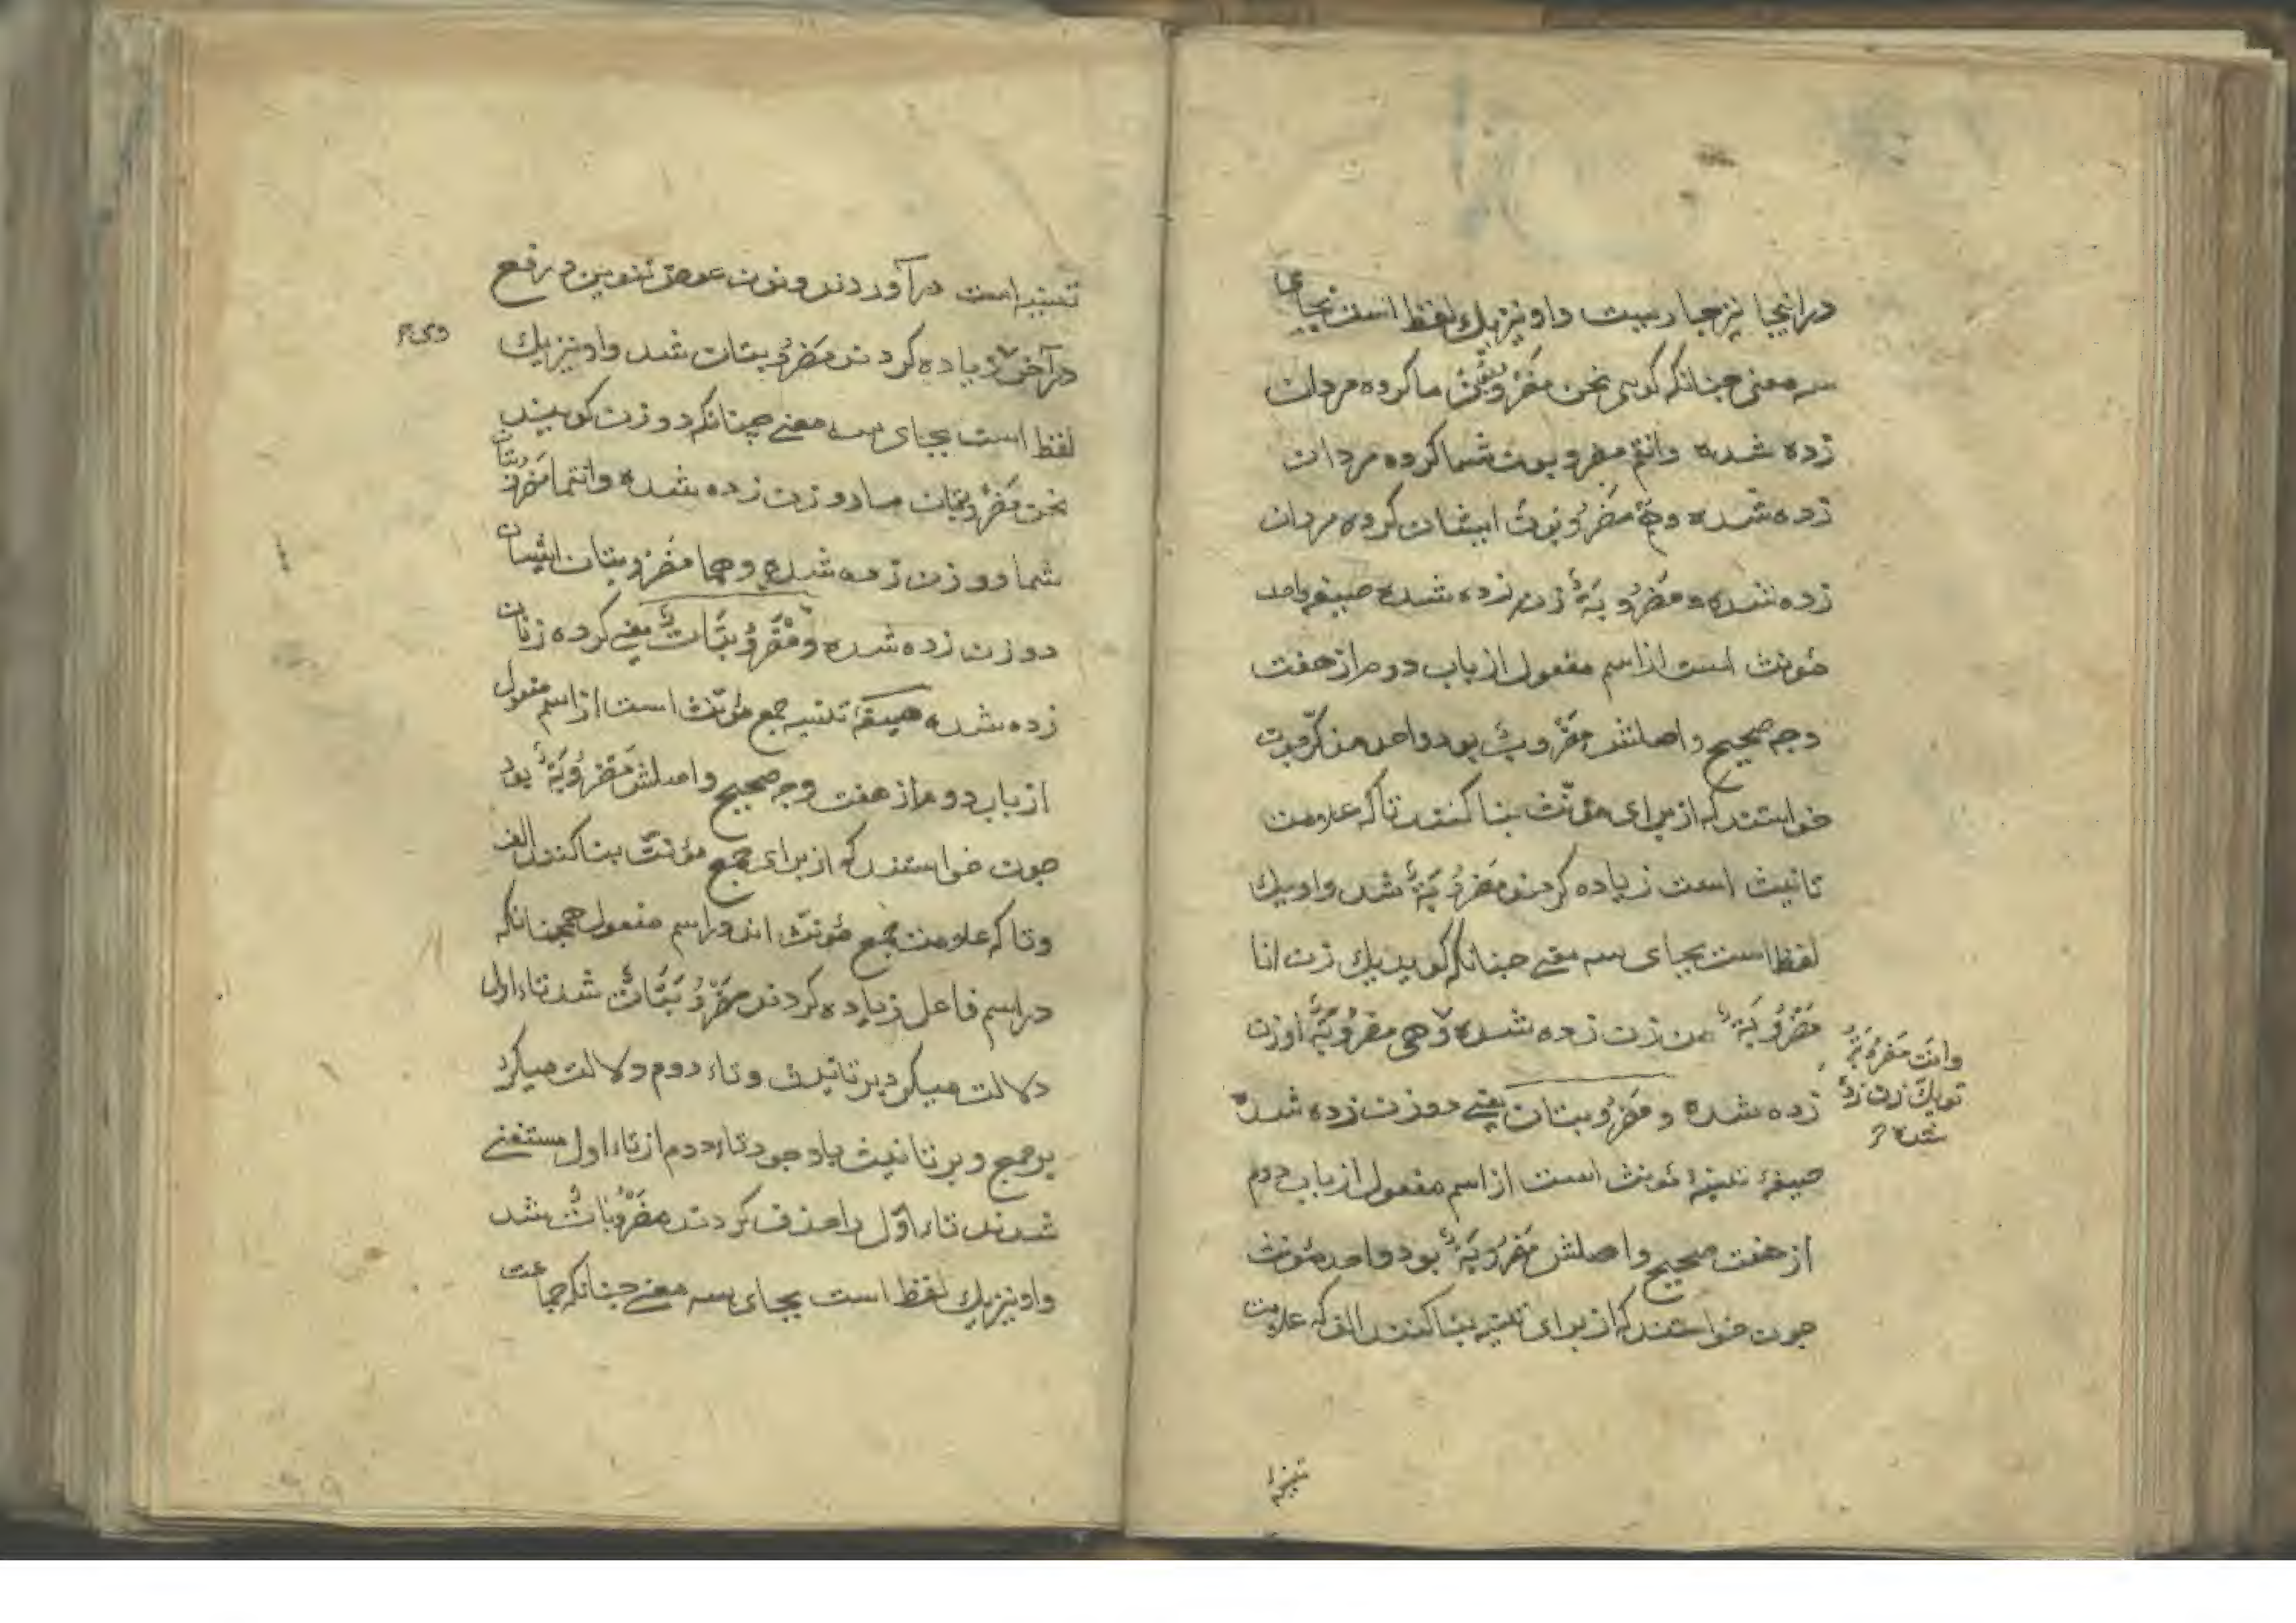 در اینجا نیز جاریست و او نیز یك لفظ است بجای
سه معنی چنانکه کویی نحن مضروبون ما کروه مردان
زده شده وانتم مضروبون شما کروه مردان
زده شده وهم مَضرُوبونَ ایشان کروه مردان
زده شده و مَضرُوبَةٌ زن زده شده صیغه واحد
مؤنث است از اسم مفعول از باب دوم از هفت
وجه صحیح واصلش مَضروبٌ بود واحد مذکّر چون
خواستند که از برای مؤنّث بنا کنند تا که علامت
تانیث است زیاده کردند مَضرُوبَةٌ شد واو یك
لفظ است بجای سه معنی چنانکه کوید یك زن انا
مَضْرُوبَةٌ من زن زده شده وهی مضرُوبَةٌ او زن
وانت مضروبة
تو یك زن زده
شده
زده شده و مَضرُوبتان یعنی دو زن زده شده
صیغهٔ تثنیهٔ مؤنث است از اسم مفعول از باب دوم
از هفت صحیح واصلش مَضرُوبَةٌ بود واحد مؤنث
چون خواستند که از برای تثنیه بنا کنند الف که علامت
تثنیه
تثنیه است در آوردند ونون عوض تنوین در رفع
در آخر زیاده کردند مَضرُوبتان شد واو نیز یك
لفظ است بجای سه معنی چنانکه دو زن کویند
نحن مَضرُوبتان ما دو زن زده شده وانتما مَضروبتان
شما دو زن زده شده وهما مَضرُوبتان ایشان
دو زن زده شده و مَضْرُوبَتَاتٌ یعنی کرده زنان
زده شده صیغهٔ تثنیه جمع مؤنّث است از اسم مفعول
از باب دوم از هفت وجه صحیح واصلش مَضرُوبَةٌ بود
چون خواستند که از برای جمع مؤنّث بنا کنند الف
وتا که علامت جمع مؤنّث اند در اسم مفعول همچنانکه
در اسم فاعل زیاده کردند مَضْرُوبَتَاتٌ شد تاء اول
دلالت میکرد بر تانیث وتاء دوم دلالت میکرد
بر جمع وبر تانیث باوجود تاء دوم از تاء اول مستغنی
شدند تاء اوّل را حذف کردند مَضْرُوبَاتٌ شد
واو نیز یك لفظ است بجای سه معنی چنانکه جماعت